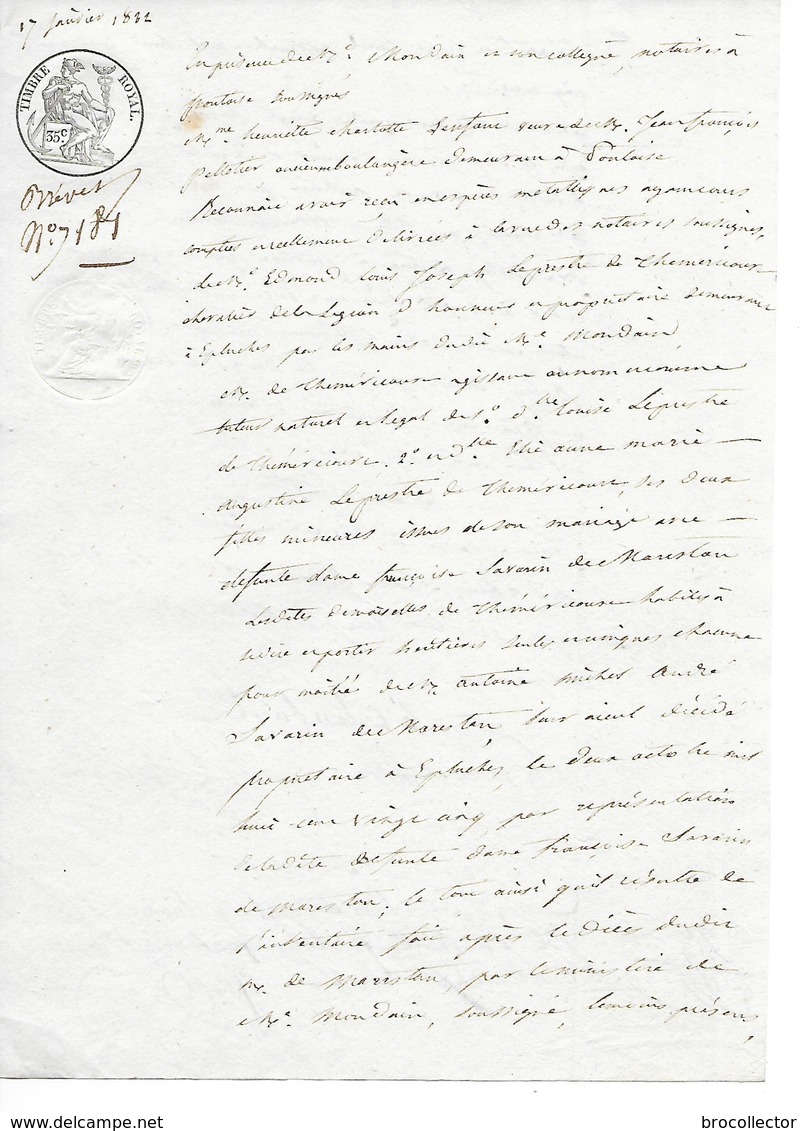 17 janvier 1832
TIMBRE ROYAL.
35c
Brévet
No. 7181
En présence de Me. Mondain et son collègue, notaires à
Pontoise soussignés
Mme henriette charlotte Lenfant veuve de M. Jean françois
Pelletier ancienne boulangère demeurant à Pontoise
Reconnait avoir reçu en espèces métalliques ayant cours
comptées et réellement délivrées à la vue des notaires soussignés,
de M. Edmond Louis Joseph Leprestre de Theméricourt
chevalier de la Légion d'honneur et propriétaire demeurant
à Epluches par les mains dudit Me. Mondain
M. de Theméricourt agissant au nom et comme
tuteur naturel et légal de 1o. dlle Louise Leprestre
de Théméricourt, 2o. et dlle Elie anne marie
augustine Leprestre de Theméricourt, ses deux
filles mineures issues de son mariage avec
défunte dame françoise Savarin de Marestan
Lesdites demoiselles de Théméricourt habiles à
se dire et porter héritières seules et uniques chacune
pour moitié de M. antoine michel andré
Savarin de Marestan leur aieul décédé
propriétaire à Epluches, le deux octobre mil
huit cent vingt cinq, par représentation
de ladite défunte dame françoise Savarin
de Marestan; le tout ainsi qu'il résulte de
l'inventaire fait après le décès dudit
M. de Marestan, par le ministère de
Me. Mondain, soussigné, témoins présens,
brocollector